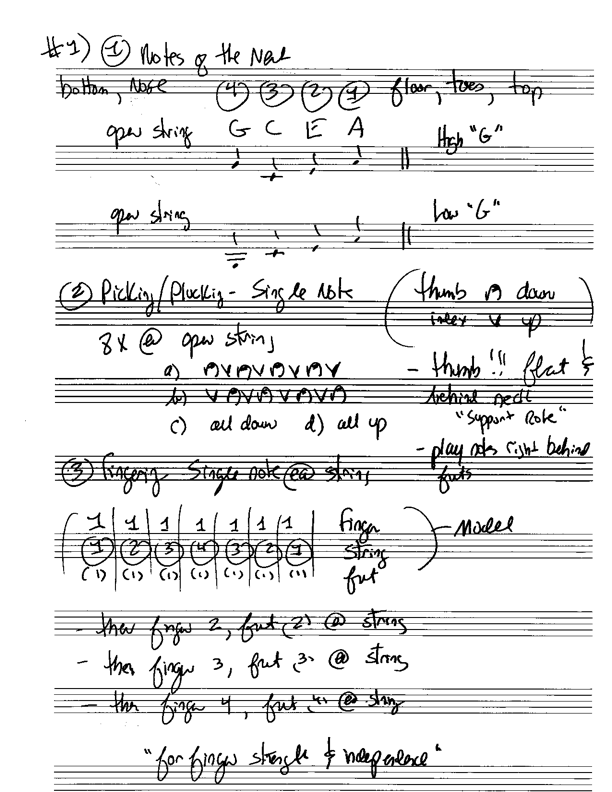 #1) ① Notes of the Neck
bottom, Nose ④ ③ ② ① floor, toes, top
open string G C E A High "G"
open string Low "G"
② Picking/Plucking - Single Note (thumb ⊓ down
index V up)
8x @ open string
a) ⊓V⊓V⊓V⊓V - thumb!!! flat &
b) V⊓V⊓V⊓V⊓ behind neck
c) all down d) all up "Support Role"
- play notes right behind
frets
③ Fingering Single note @ea string
(1 | 1 | 1 | 1 | 1 | 1 | 1 finger
① | ② | ③ | ④ | ③ | ② | ① string) - Model
(1) (1) (1) (1) (1) (1) (1) fret
- then finger 2, fret (2) @ string
- then finger 3, fret 3 @ string
- then finger 4, fret 4 @ string
"for finger strength & independence"